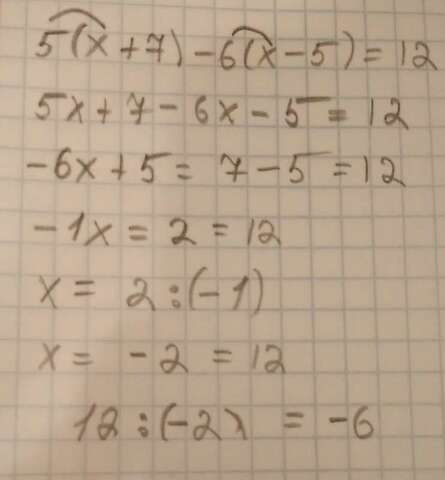 5(x+7)-6(x-5)=12
5x+7-6x-5=12
-6x+5=7-5=12
-1x=2=12
x=2:(-1)
x=-2=12
12:(-2)=-6